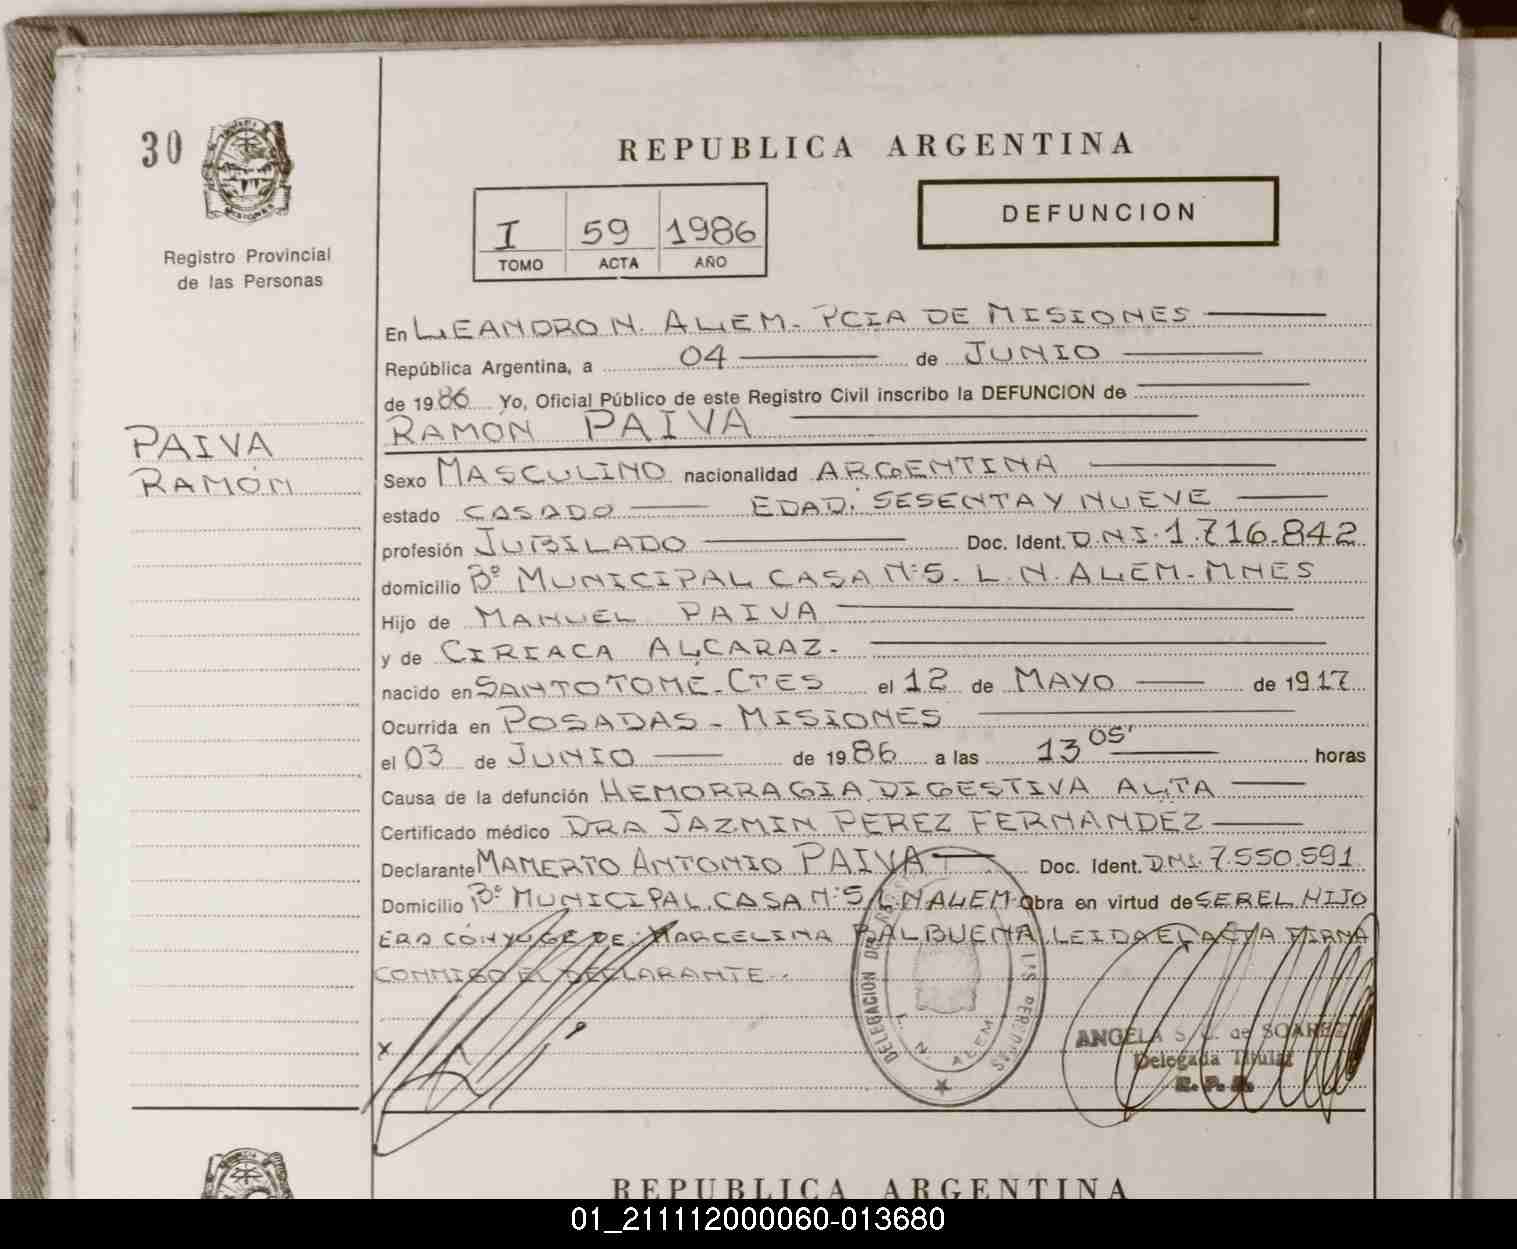 30
REPUBLICA ARGENTINA
DEFUNCION
I 59 1986
TOMO ACTA AÑO
Registro Provincial
de las Personas
En LEANDRO N. ALEM - PCIA DE MISIONES
República Argentina, a 04 de JUNIO
de 1986 Yo, Oficial Público de este Registro Civil inscribo la DEFUNCION de
RAMON PAIVA
PAIVA
RAMÓN
Sexo MASCULINO nacionalidad ARGENTINA
estado CASADO EDAD: SESENTA Y NUEVE
profesión JUBILADO Doc. Ident. D.N.I. 1.716.842
domicilio Bº MUNICIPAL CASA Nº 5. L. N. ALEM - MNES
Hijo de MANUEL PAIVA
y de CIRIACA ALCARAZ.
nacido en SANTO TOMÉ - CTES el 12 de MAYO de 1917
Ocurrida en POSADAS - MISIONES
el 03 de JUNIO de 1986 a las 13 05' horas
Causa de la defunción HEMORRAGIA DIGESTIVA ALTA
Certificado médico DRA JAZMIN PEREZ FERNANDEZ
Declarante MAMERTO ANTONIO PAIVA Doc. Ident. DNI. 7.550.591
Domicilio Bº MUNICIPAL CASA Nº 5 L. N ALEM Obra en virtud de SER EL HIJO
ERA CÓNYUGE DE: MARCELINA BALBUENA LEIDA EL ACTA FIRMA
CONMIGO EL DECLARANTE..
DELEGACION DEL REG. DE LAS PERSONAS
L. N. ALEM
X
ANGELA S. de SOAREZ
Delegada Titular
REPUBLICA ARGENTINA
01_211112000060-013680